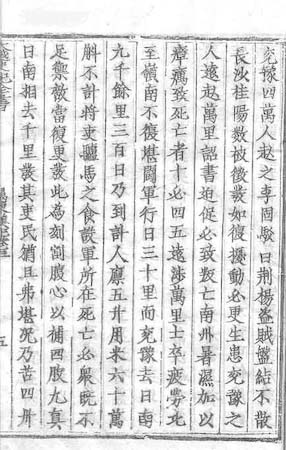 兖豫四萬人赴之李固駁曰荆楊盗賊盤結不散
長沙桂陽數被徵發如復擾動必更生患兖豫之
人遠赴萬里詔書迫促必致叛亡南州暑濕加以
瘴癘致死亡者十必四五遠涉萬里士卒疲勞比
至嶺南不復堪鬪軍行日三十里而兖豫去日南
九千餘里三百日乃到計人廩五升用米六十萬
斛不計將吏驢馬之食設軍所在死亡必衆既不
足禦敵當復更發此為刻割腹心以補四肢九真
日南相去千里發其吏民猶且弗堪况乃苦四州
五